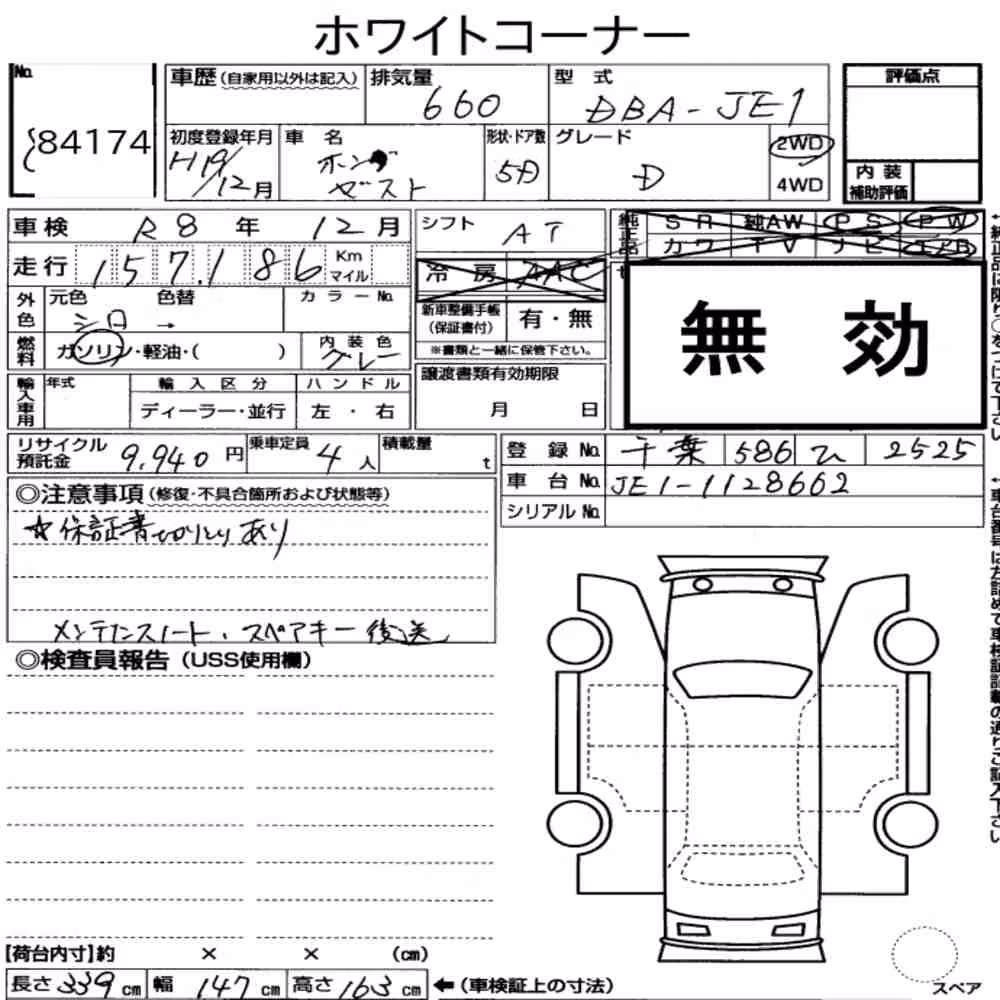 ホワイトコーナー
No. 84174
車歴(自家用以外は記入) 排気量 660 型式 DBA-JE1 評価点
初度登録年月 H19/12月 車名 ホンダ ゼスト 形状・ドア数 5D グレード D 2WD 4WD
内装補助評価
車検 R8年 12月 シフト AT 純正品 SR 純AW PS PW
走行 157,186 Km マイル カワ TV ナビ エアB
冷房 AAC
外色 元色 シロ 色替 → カラーNo.
新車整備手帳(保証書付) 有・無
※書類と一緒に保管下さい。
燃料 ガソリン・軽油・( ) 内装色 グレー
無効
輸入車用 年式 輸入区分 ディーラー・並行 ハンドル 左・右
譲渡書類有効期限 月 日
リサイクル預託金 9,940円 乗車定員 4人 積載量 t
登録No. 千葉 586 ひ 2525
車台No. JE1-1128662
シリアルNo.
◎注意事項(修復・不具合箇所および状態等)
☆保証書切りとりあり
メンテナンスノート、スペアキー後送
◎検査員報告(USS使用欄)
【荷台内寸】約 × × (cm)
長さ 339cm 幅 147cm 高さ 163cm ←(車検証上の寸法)
スペア